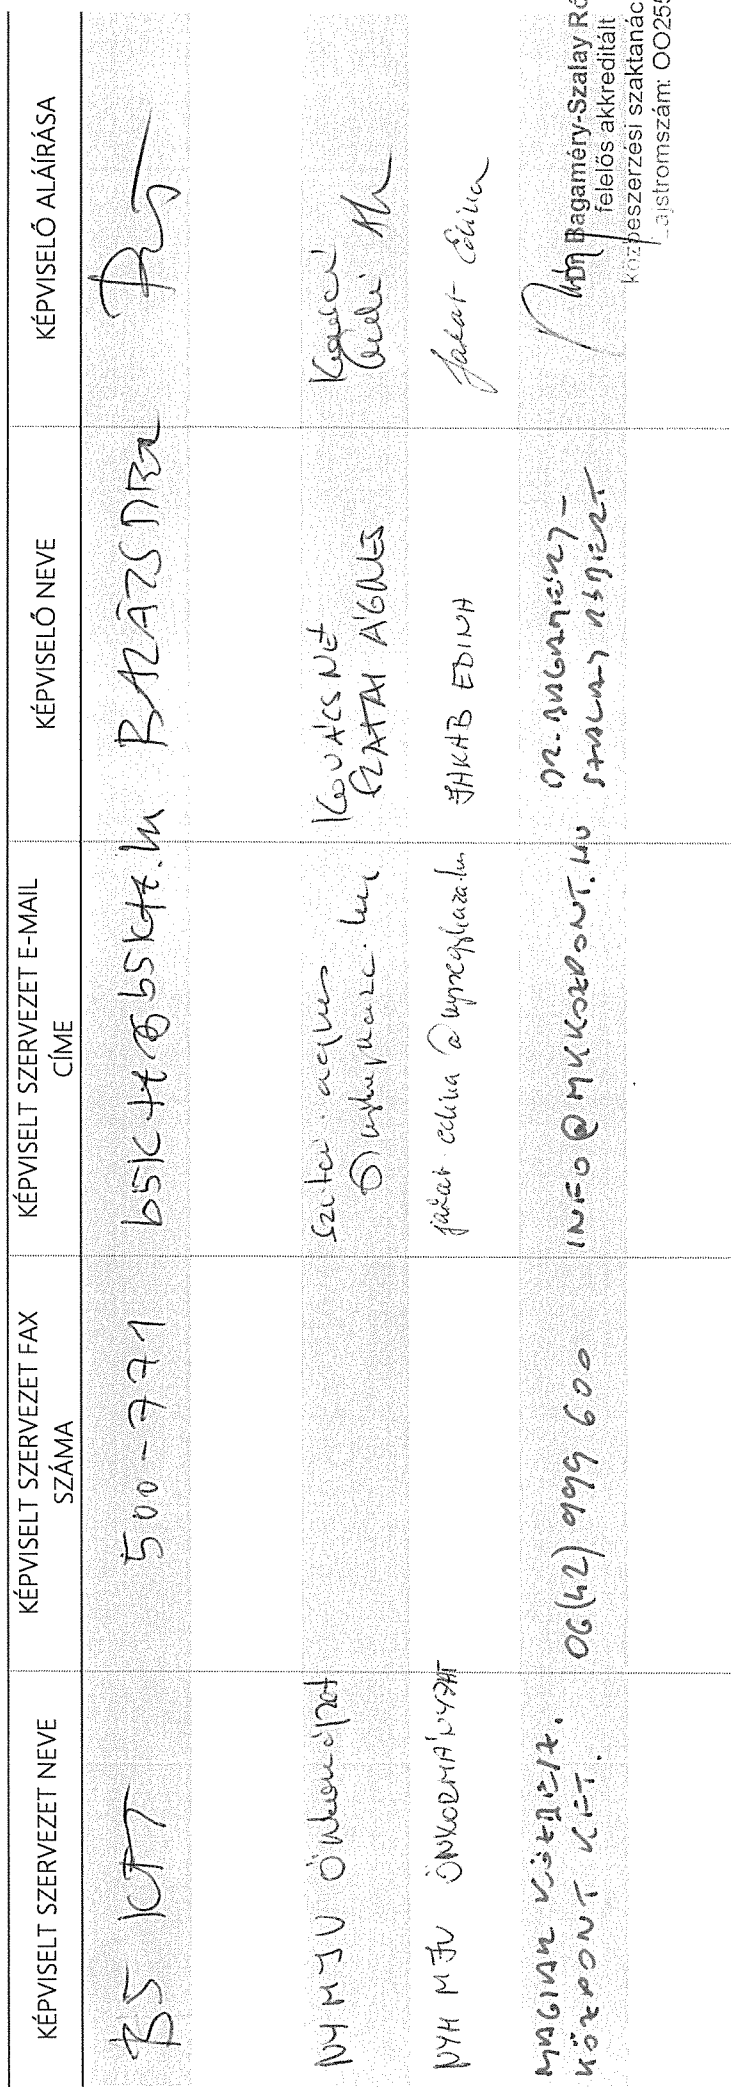 KÉPVISELT SZERVEZET NEVE
KÉPVISELT SZERVEZET FAX
SZÁMA
KÉPVISELT SZERVEZET E-MAIL
CÍME
KÉPVISELŐ NEVE
KÉPVISELŐ ALÁÍRÁSA
B5 KFT
500-771
b5kft@b5kft.hu
NYMJV Önkormányzat
KOVÁCSNÉ
SZATAI ÁGNES
NYH MJV ÖNKORMÁNYZAT
jakab.edina@nyiregyhaza.hu
JAKAB EDINA
Jakab Edina
MAGYAR KÖZBESZ.
KÖZPONT KFT.
06(42) 999 600
INFO@MKKOZPONT.HU
DR. BAGAMÉRY-
SZALAY RÓBERT
Dr. Bagaméry-Szalay Ró
felelős akkreditált
közbeszerzési szaktanác
ajstromszám: OO255